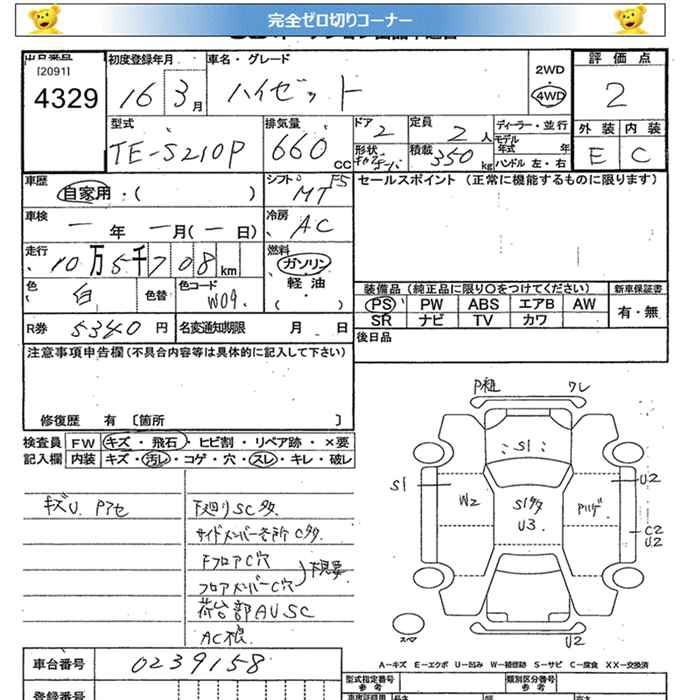 完全ゼロ切りコーナー
[2091]
4329
初度登録年月
16 3月
車名・グレード
ハイゼット
2WD
4WD
評価点
2
外装 内装
E C
型式
TE-S210P
排気量
660 CC
ドア
2
形状
定員
2 人
積載
350 kg
ディーラー・並行
モデル年式 年
ハンドル 左・右
車歴
自家用・( )
シフト
F5
MT
セールスポイント (正常に機能するものに限ります)
車検
一 年 一 月(一 日)
冷房
AC
走行
10万5千708km
燃料
ガソリン
軽油
( )
色
白
色替
色コード
W09
装備品 (純正品に限り○をつけてください)
新車保証書
PS PW ABS エアB AW
SR ナビ TV カワ
有・無
R券 5340 円
名変通知期限 月 日
後日品
注意事項申告欄 (不具合内容等は具体的に記入して下さい)
修復歴 有 〔箇所 〕
検査員 FW キズ・飛石・ヒビ割・リペア跡・×要
記入欄 内装 キズ・汚レ・コゲ・穴・スレ・キレ・破レ
キズU Pアセ
下廻りSC多
サイドメンバー各所C多
FフロアC穴
フロアメンバーC穴
荷台部AUSC
AC根
P粗 ワレ
S1
S1
U2
W2
S1多
U3
Pハゲ
C2
U2
スマ
U2
A-キズ E-エクボ U-凹み W-補修跡 S-サビ C-腐食 XX-交換済
車台番号
0239158
登録番号
型式指定番号
参考
類別区分番号
参考